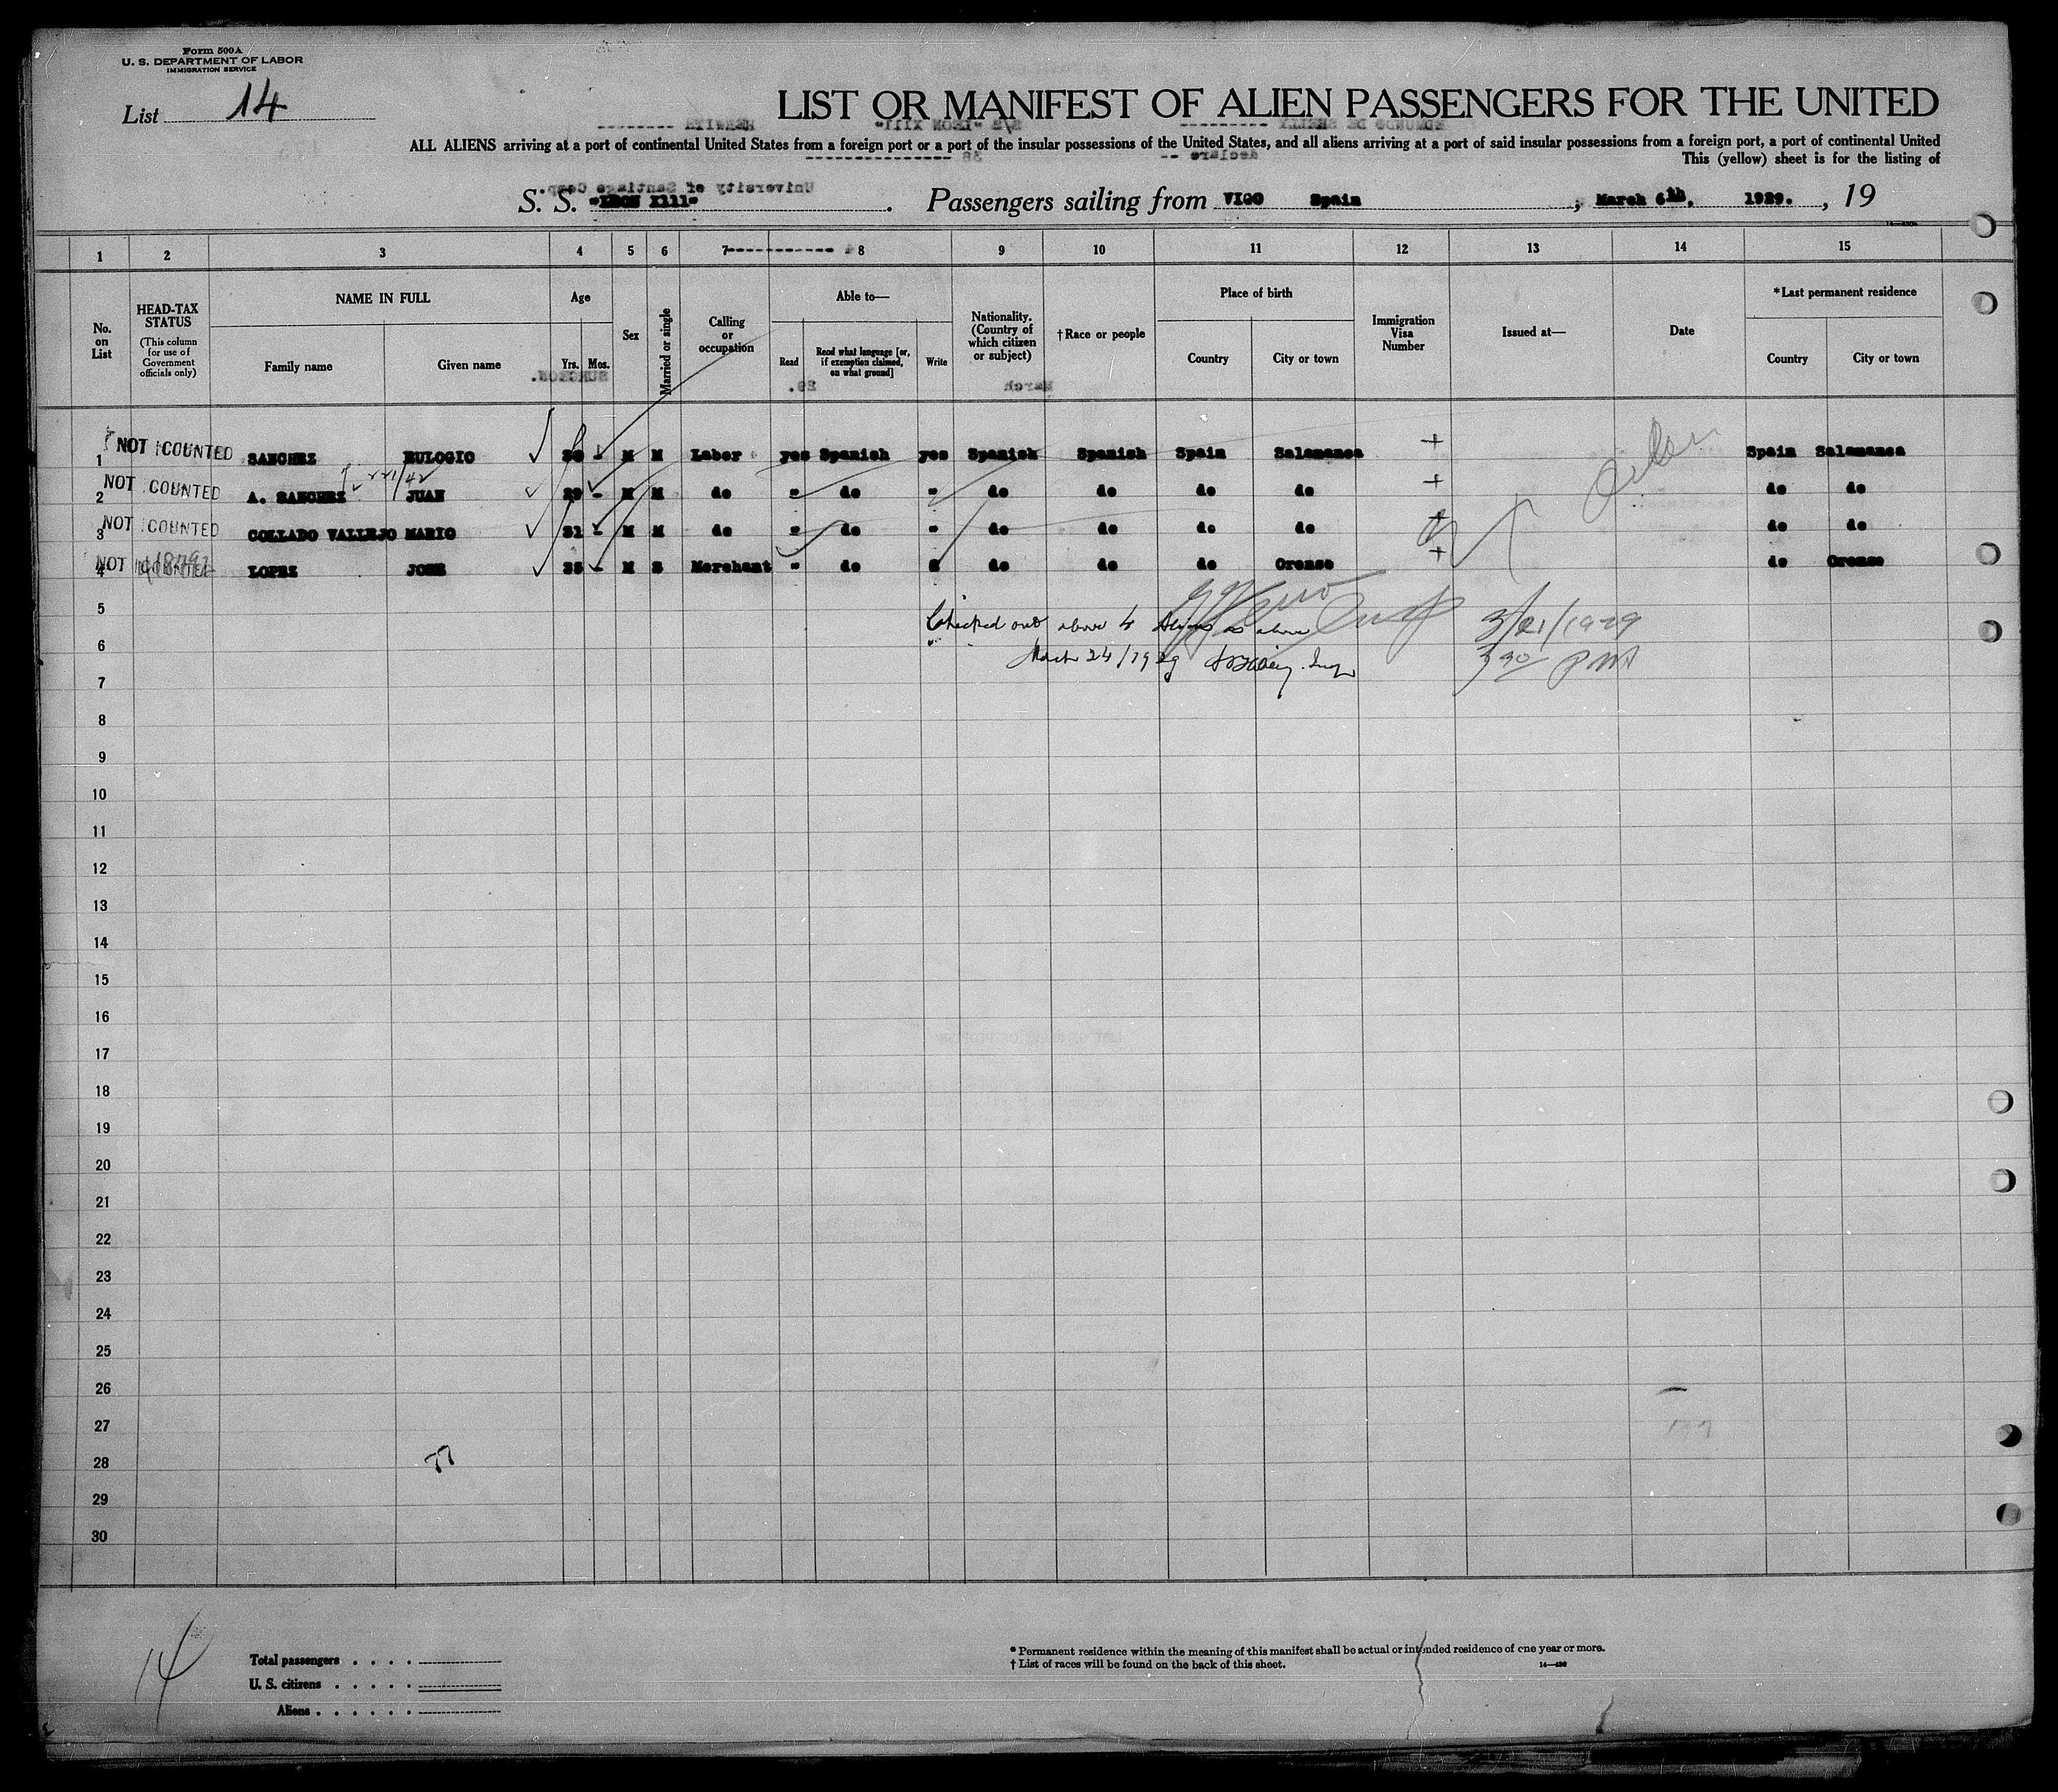 Form 500A
U. S. DEPARTMENT OF LABOR
IMMIGRATION SERVICE
List 14
LIST OR MANIFEST OF ALIEN PASSENGERS FOR THE UNITED
ALL ALIENS arriving at a port of continental United States from a foreign port or a port of the insular possessions of the United States, and all aliens arriving at a port of said insular possessions from a foreign port, a port of continental United
This (yellow) sheet is for the listing of
S. S. "LEON X111". Passengers sailing from VIGO Spain, March 6th, 1929., 19
1 2 3 4 5 6 7 8 9 10 11 12 13 14 15
No. on List
HEAD-TAX STATUS (This column for use of Government officials only)
NAME IN FULL
Family name Given name
Age
Yrs. Mos.
Sex
Married or single
Calling or occupation
Able to—
Read Read what language [or, if exemption claimed, on what ground] Write
Nationality. (Country of which citizen or subject)
†Race or people
Place of birth
Country City or town
Immigration Visa Number
Issued at—
Date
*Last permanent residence
Country City or town
1 NOT COUNTED SANCHEZ EULOGIO M M Labor yes Spanish yes Spanish Spanish Spain Salamanca Spain Salamanca
2 NOT COUNTED A. SANCHEZ JUAN 29 - M M do " do " do do do do do do
3 NOT COUNTED COLLADO VALLEJO MARIO 31 - M M do " do " do do do do do do
4 NOT COUNTED LOPEZ JOSE 35 - M S Merchant " do " do do do Orense do Orense
5
Checked out above 4 Aliens as above
3/21/1929
6
March 24/1929
3 30 PM
7
8
9
10
11
12
13
14
15
16
17
18
19
20
21
22
23
24
25
26
27
28
29
30
14
Total passengers
U. S. citizens
Aliens
* Permanent residence within the meaning of this manifest shall be actual or intended residence of one year or more.
† List of races will be found on the back of this sheet.